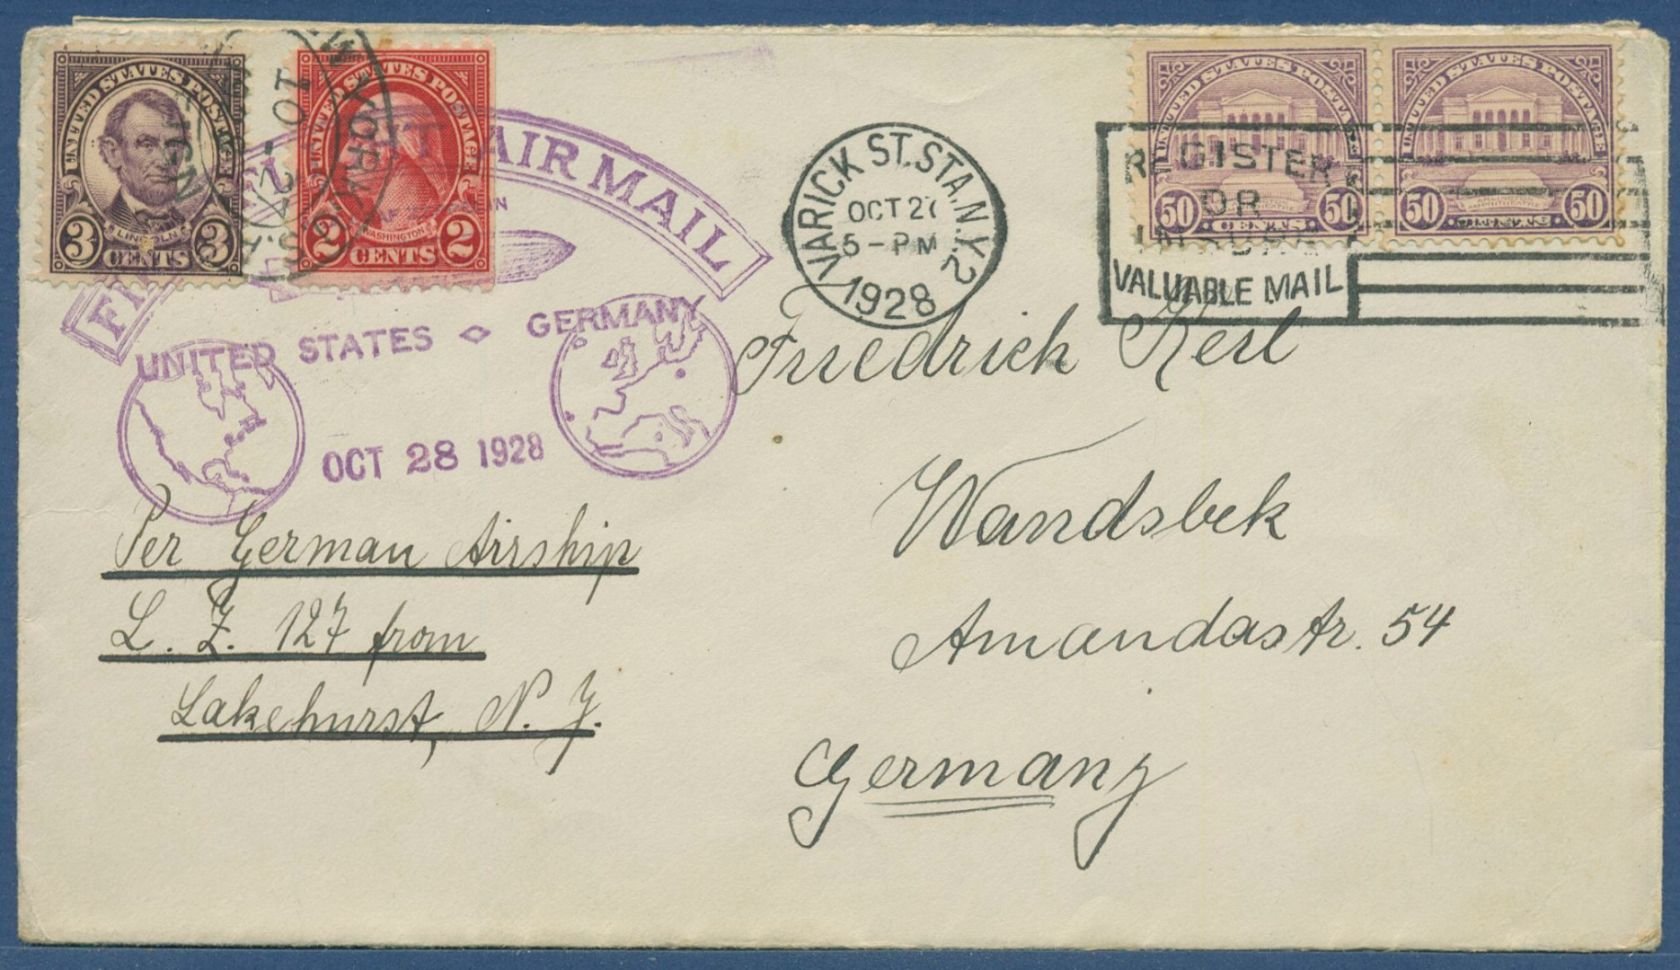 UNITED STATES POSTAGE
LINCOLN
3 CENTS 3
UNITED STATES POSTAGE
WASHINGTON
2 CENTS 2
YORK
AIR MAIL
UNITED STATES ◇ GERMANY
OCT 28 1928
VARICK ST. STA. N.Y. 2
OCT 27
5 - PM
1928
UNITED STATES POSTAGE
50 CENTS 50
UNITED STATES POSTAGE
50 50
REGISTER
OR
VALUABLE MAIL
Friedrich Kesl
Wandsbek
Amandastr. 54
Germany
Per German Airship
L. Z. 127 from
Lakehurst, N. J.